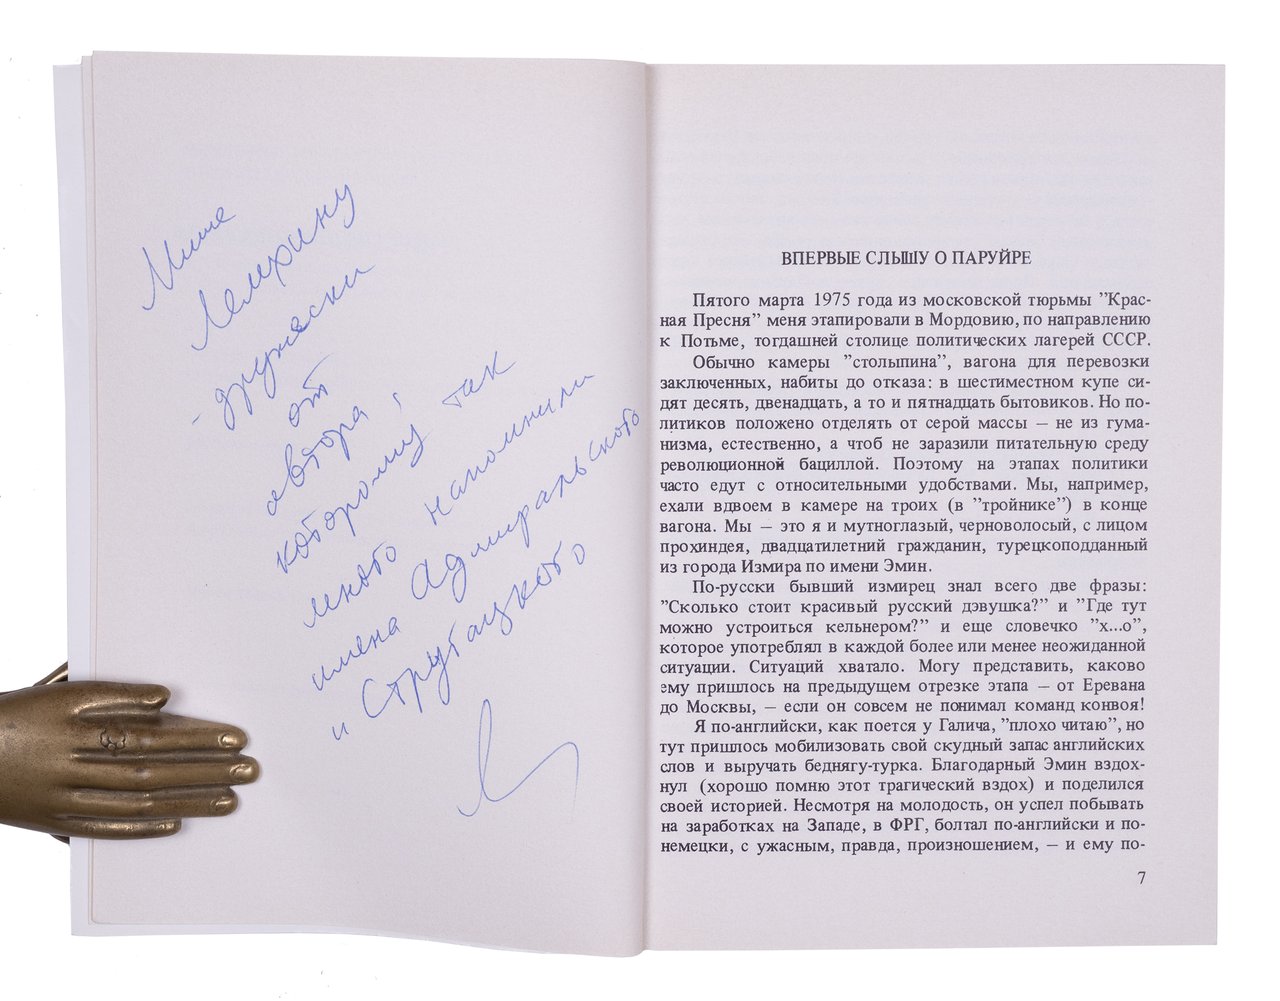 Мише
Лемхину
- дружески
от
автора,
которому так
много напомнили
имена Адмиральского
и Стругацкого
ВПЕРВЫЕ СЛЫШУ О ПАРУЙРЕ
Пятого марта 1975 года из московской тюрьмы "Крас-
ная Пресня" меня этапировали в Мордовию, по направлению
к Потьме, тогдашней столице политических лагерей СССР.
Обычно камеры "столыпина", вагона для перевозки
заключенных, набиты до отказа: в шестиместном купе си-
дят десять, двенадцать, а то и пятнадцать бытовиков. Но по-
литиков положено отделять от серой массы – не из гума-
низма, естественно, а чтоб не заразили питательную среду
революционной бациллой. Поэтому на этапах политики
часто едут с относительными удобствами. Мы, например,
ехали вдвоем в камере на троих (в "тройнике") в конце
вагона. Мы – это я и мутноглазый, черноволосый, с лицом
прохиндея, двадцатилетний гражданин, турецкоподданный
из города Измира по имени Эмин.
По-русски бывший измирец знал всего две фразы:
"Сколько стоит красивый русский дэвушка?" и "Где тут
можно устроиться кельнером?" и еще словечко "х...о",
которое употреблял в каждой более или менее неожиданной
ситуации. Ситуаций хватало. Могу представить, каково
ему пришлось на предыдущем отрезке этапа – от Еревана
до Москвы, – если он совсем не понимал команд конвоя!
Я по-английски, как поется у Галича, "плохо читаю", но
тут пришлось мобилизовать свой скудный запас английских
слов и выручать беднягу-турка. Благодарный Эмин вздох-
нул (хорошо помню этот трагический вздох) и поделился
своей историей. Несмотря на молодость, он успел побывать
на заработках на Западе, в ФРГ, болтал по-английски и по-
немецки, с ужасным, правда, произношением, – и ему по-
7